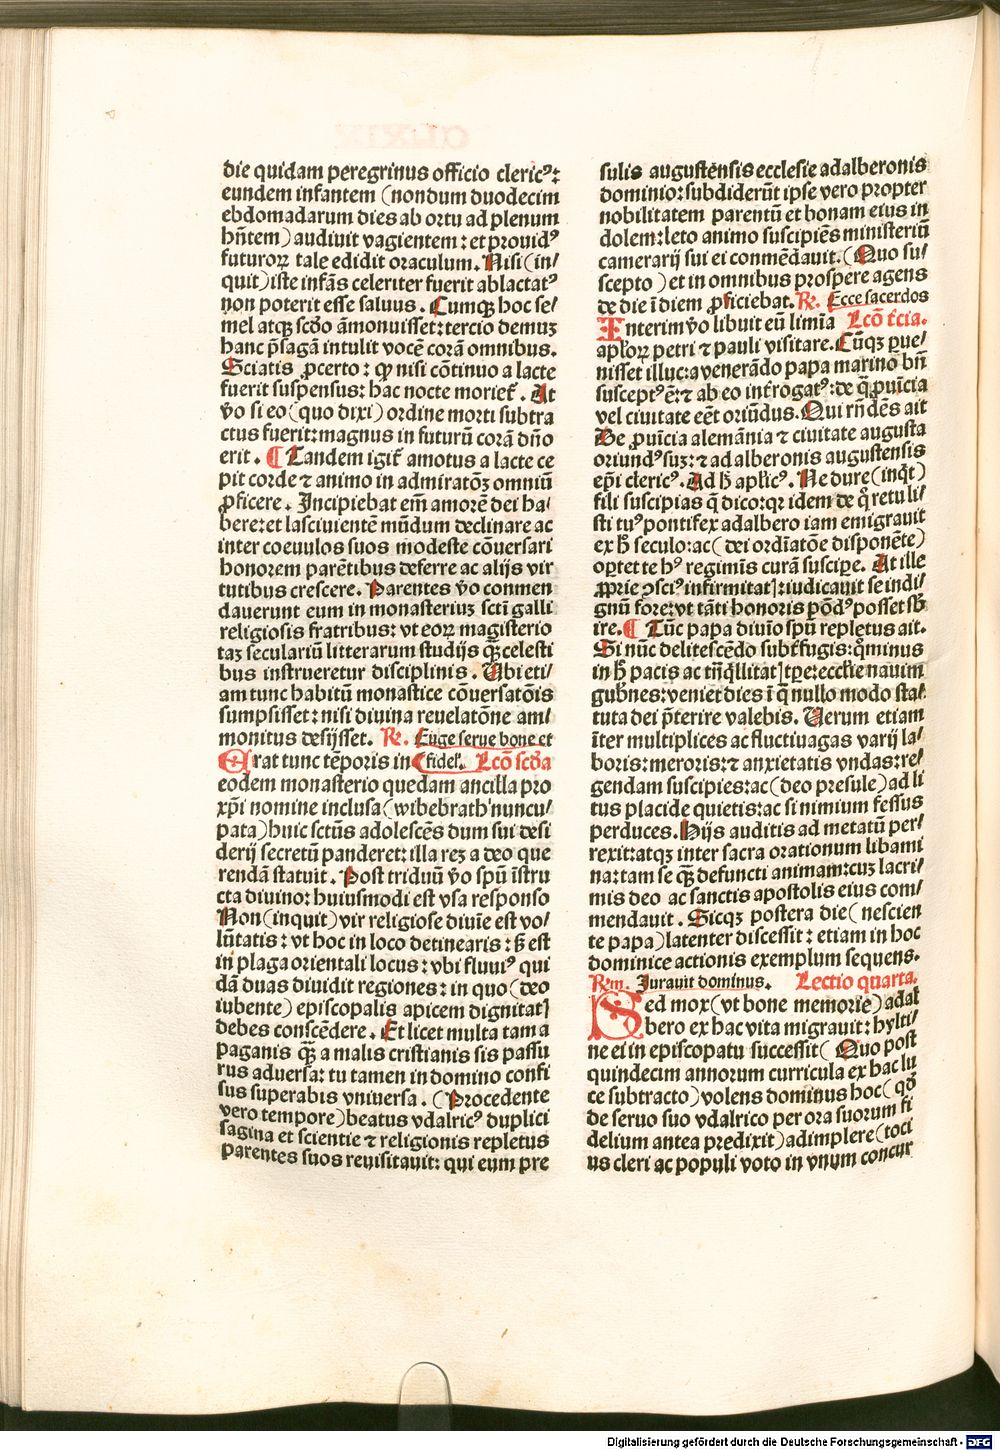 die quidam peregrinus officio clericꝰ:
eundem infantem (nondum duodecim
ebdomadarum dies ab ortu ad plenum
hñtem) audiuit vagientem: et prouidꝰ
futuroꝝ tale edidit oraculum. Nisi (in/
quit) iste infãs celeriter fuerit ablactatꝰ
non poterit esse saluus. Cumqꝫ hoc se/
mel atqꝫ scđo ãmonuisset: tercio demuꝫ
hanc p̃sagã intulit vocẽ corã omnibus.
Sciatis ꝓcerto: ꝙ nisi cõtinuo a lacte
fuerit suspensus: hac nocte morieť. At
v̊o si eo (quo dixi) ordine morti subtra
ctus fuerit: magnus in futurũ corã dño
erit. ¶ Tandem igiť amotus a lacte ce
pit corde ⁊ animo in admiratõꝫ omniũ
ꝓficere. Incipiebat em̃ amorẽ dei ha/
bere: et lasciuientẽ mũdum declinare ac
inter coeuulos suos modeste cõuersari
honorem parẽtibus deferre ac alijs vir
tutibus crescere. Parentes v̊o conmen
dauerunt eum in monasteriuꝫ scti galli
religiosis fratribus: vt eoꝝ magisterio
taꝫ seculariũ litterarum studijs qꝫ̃ celesti
bus instrueretur disciplinis. Ubi eti/
am tunc habitũ monastice cõuersatõis
sumpsisset: nisi diuina reuelatõne am/
monitus desijsset. ℞. Euge serue bone et
Erat tunc tẽporis in (fidel̕. Lcõ scđa
eodem monasterio quedam ancilla pro
xp̃i nomine inclusa (wibebrath' nuncu/
pata) huic sctũs adolescẽs dum sui desi
derij secretũ panderet: illa reꝫ a deo que
rendã statuit. Post triduũ v̊o sp̃u ĩstru
cta diuino: huiusmodi est vsa responso
Non (inquit) vir religiose diuĩe est vo/
lũtatis: vt hoc in loco detinearis: ß est
in plaga orientali locus: vbi fluuiꝰ qui
dã duas diuidit regiones: in quo (deo
iubente) episcopalis apicem dignitatꝭ
debes conscẽdere. Et licet multa tam a
paganis qꝫ̃ a malis cristianis sis passu
rus aduersa: tu tamen in domino confi
sus superabis vniuersa. (Procedente
vero tempore) beatus vdalricꝰ duplici
sagina et scientie ⁊ religionis repletus
parentes suos reuisitauit: qui eum pre
sulis augustẽsis ecclesie adalberonis
dominio: subdiderũt ipse vero propter
nobilitatem parentũ et bonam eius in
dolem: leto animo suscipiẽs ministeriũ
camerarij sui ei conmẽdauit. (Quo su/
scepto) et in omnibus prospere agens
de die ĩ diem ꝓficiebat. ℞. Ecce sacerdos
Interim v̊o libuit eũ limĩa Lcõ ťcia.
apl̕oꝝ petri ⁊ pauli visitare. Cũqꝫ ꝑue/
nisset illuc: a venerãdo papa marino bñ
susceptꝰ ẽ: ⁊ ab eo inťrogatꝰ: de q̃ ꝓuĩcia
vel ciuitate eẽt oriũdus. Qui rñdẽs ait
De ꝓuĩcia alemãnia ⁊ ciuitate augusta
oriundꝰ suꝫ: ⁊ adalberonis augustensis
ep̃i clericꝰ. Ad h̕ apl̕icꝰ. Ne dure (inq̃t)
fili suscipias q̃ dico: qꝛ idem de q̊ retuli/
sti tuꝰ pontifex adalbero iam emigrauit
ex h̕ seculo: ac (dei ordĩatõe disponẽte)
oꝑtet te hꝰ regimĩs curã suscipe. At ille
ꝓprie ꝯsciꝰ infirmitatꝭ: iudicauit se indi/
gnũ fore: vt tãti honoris põdꝰ posset sb̕
ire. ¶ Tũc papa diuĩo sp̃u repletus ait.
Si nũc delitescẽdo subťfugis: q̊minus
in h̕ pacis ac tñq̃llitatꝭ tꝑe: eccl̕ie nauim
gub̕nes: veniet dies ĩ q̃ nullo modo sta/
tuta dei p̃terire valebis. Uerum etiam
ĩter multiplices ac fluctiuagas varij la/
boris: meroris: ⁊ anxietatis vndas: re/
gendam suscipies: ac (deo presule) ad li
tus placide quietis: ac si nimium fessus
perduces. Hijs auditis ad metatũ per/
rexit: atqꝫ inter sacra orationum libami
na: tam se qꝫ̃ defuncti animam: cuꝫ lacri/
mis deo ac sanctis apostolis eius com/
mendauit. Sicqꝫ postera die (nescien
te papa) latenter discessit: etiam in hoc
dominice actionis exemplum sequens.
℞m. Jurauit dominus. Lectio quarta.
Sed mox (vt bone memorie) adal̕
bero ex hac vita migrauit: hylti/
ne ei in episcopatu successit (Quo post
quindecim annorum curricula ex hac lu
ce subtracto) volens dominus hoc (qđ
de seruo suo vdalrico per ora suorum fi
delium antea predixit) adimplere (toci
us cleri ac populi voto in vnum concur
Digitalisierung gefördert durch die Deutsche Forschungsgemeinschaft - DFG